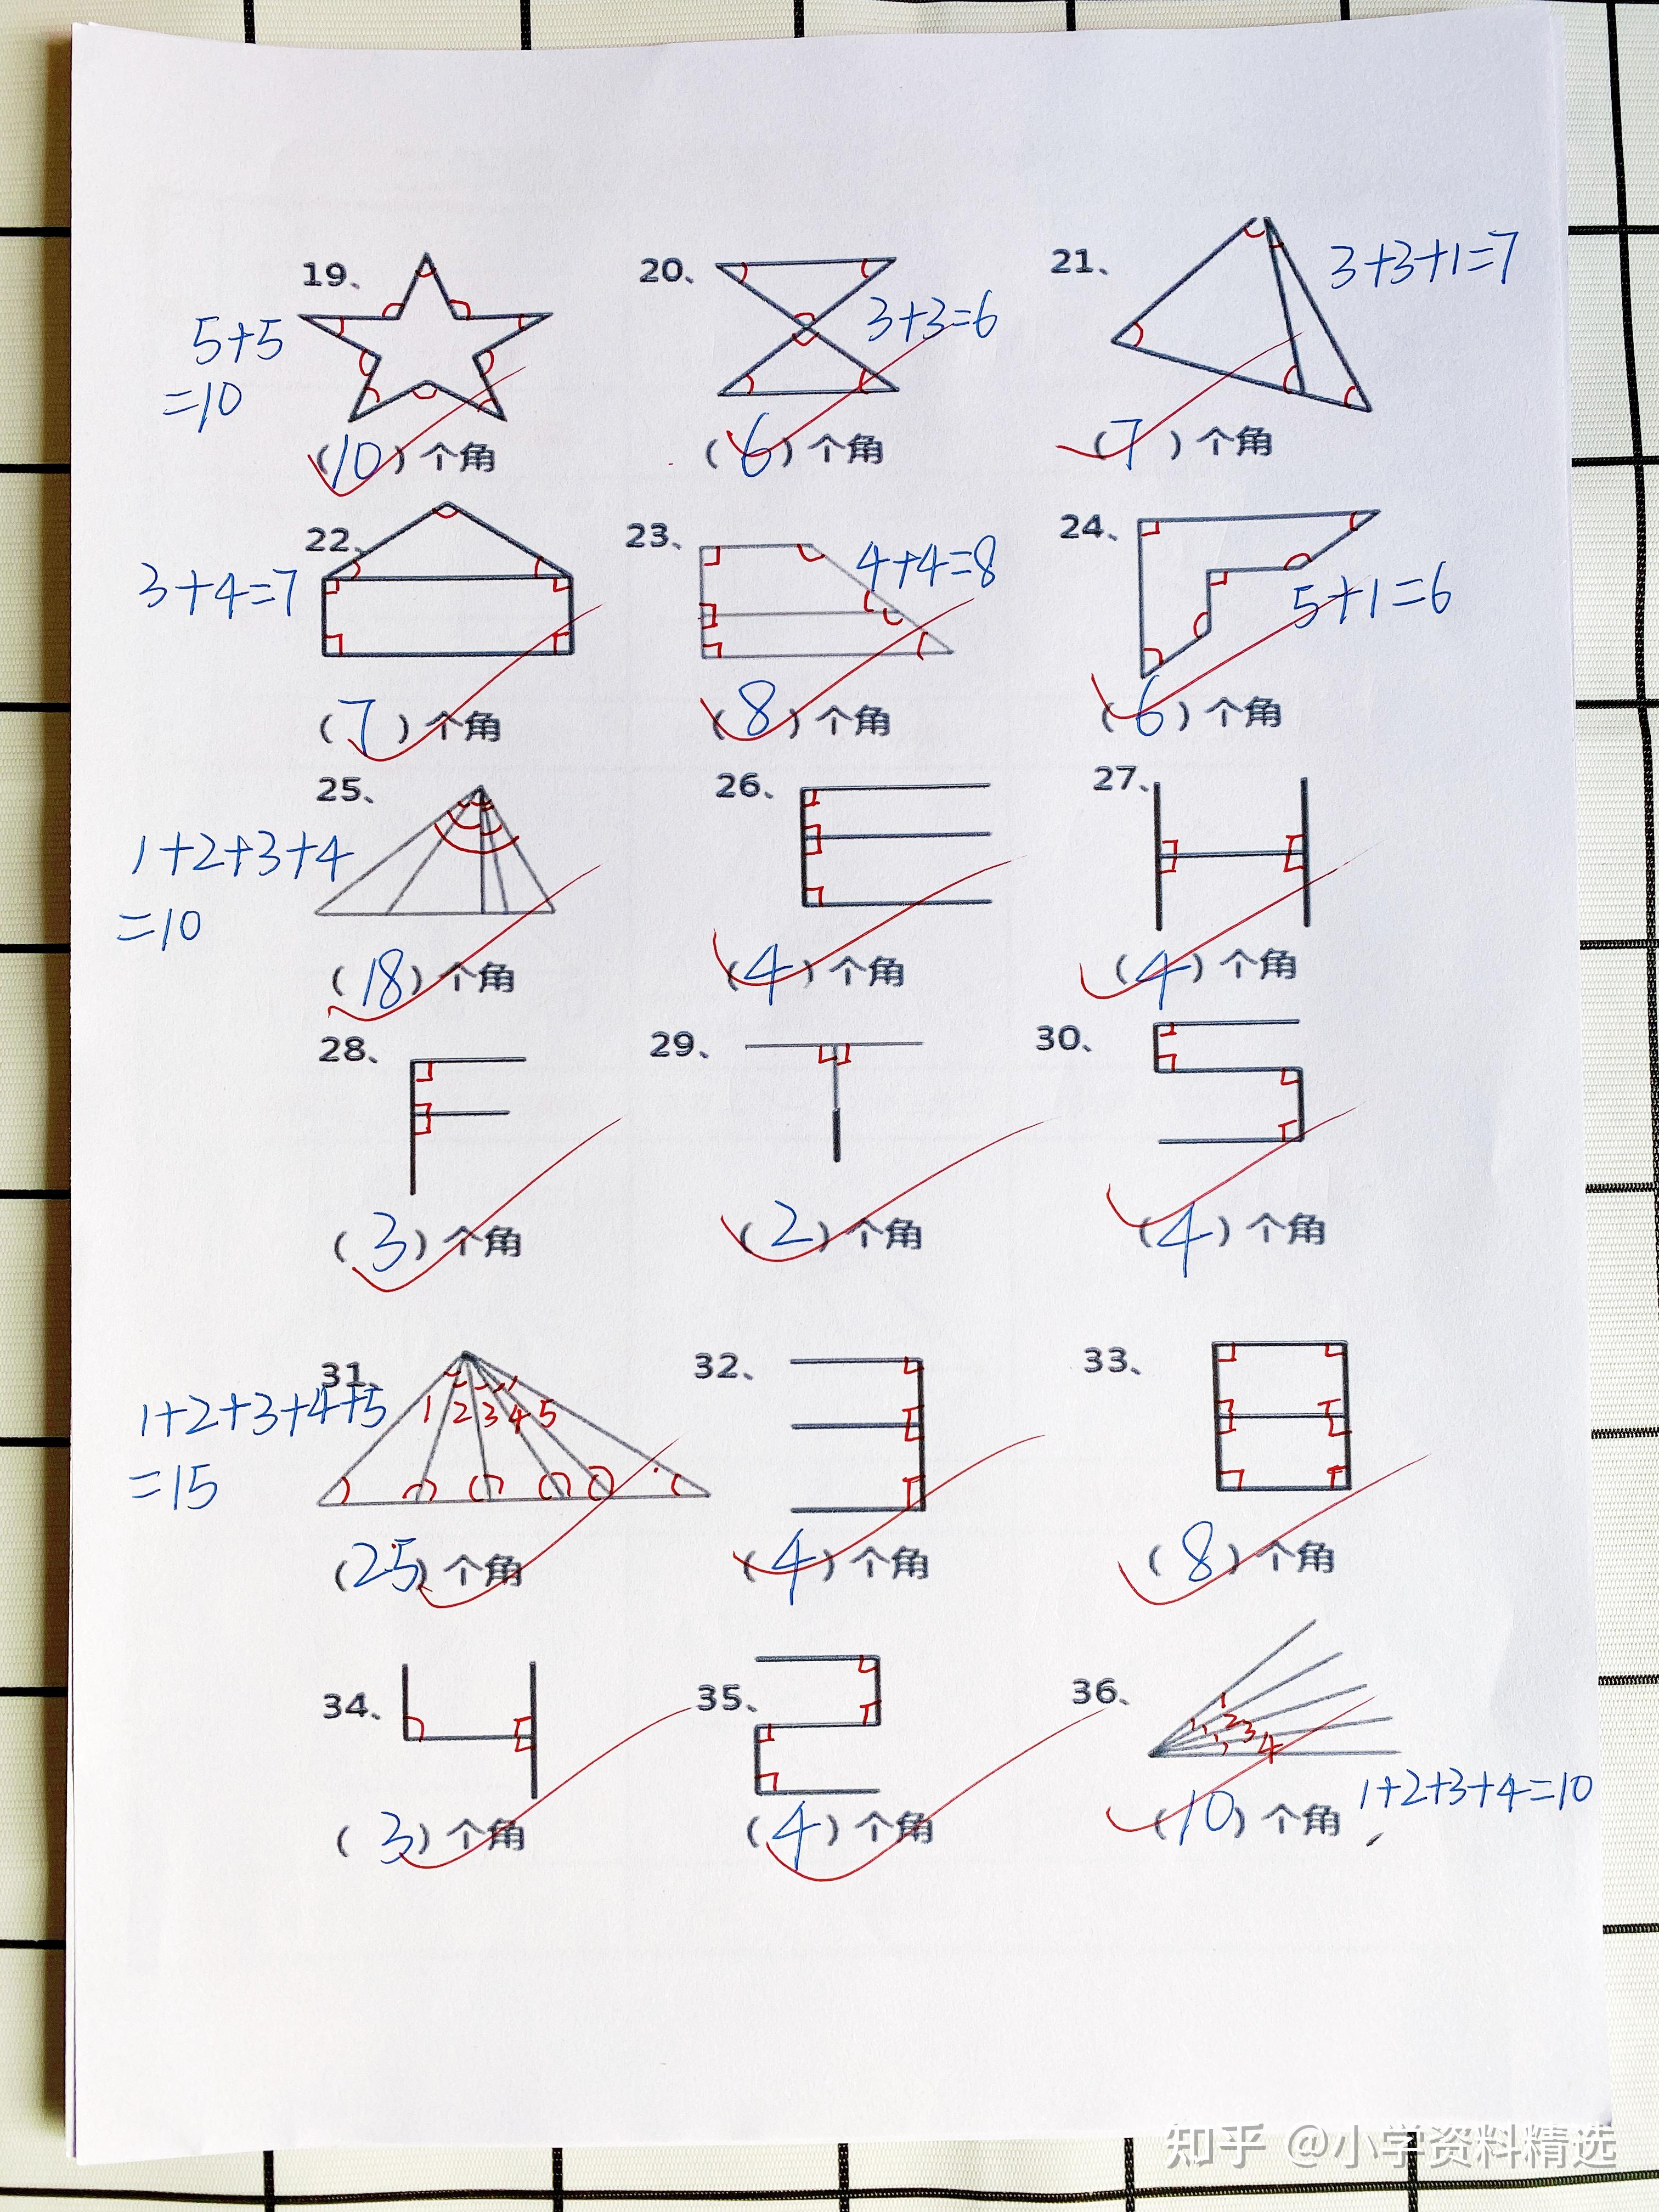 19、
20、
21、
3+3+1=7
5+5
=10
3+3=6
(10)个角
(6)个角
(7)个角
22、
23、
24、
3+4=7
4+4=8
5+1=6
(7)个角
(8)个角
(6)个角
25、
26、
27、
1+2+3+4
=10
(18)个角
(4)个角
(4)个角
28、
29、
30、
(3)个角
(2)个角
(4)个角
31、
32、
33、
1+2+3+4+5
=15
1 2 3 4 5
(25)个角
(4)个角
(8)个角
34、
35、
36、
1 2 3 4
1+2+3+4=10
(3)个角
(4)个角
(10)个角
知乎 @小学资料精选